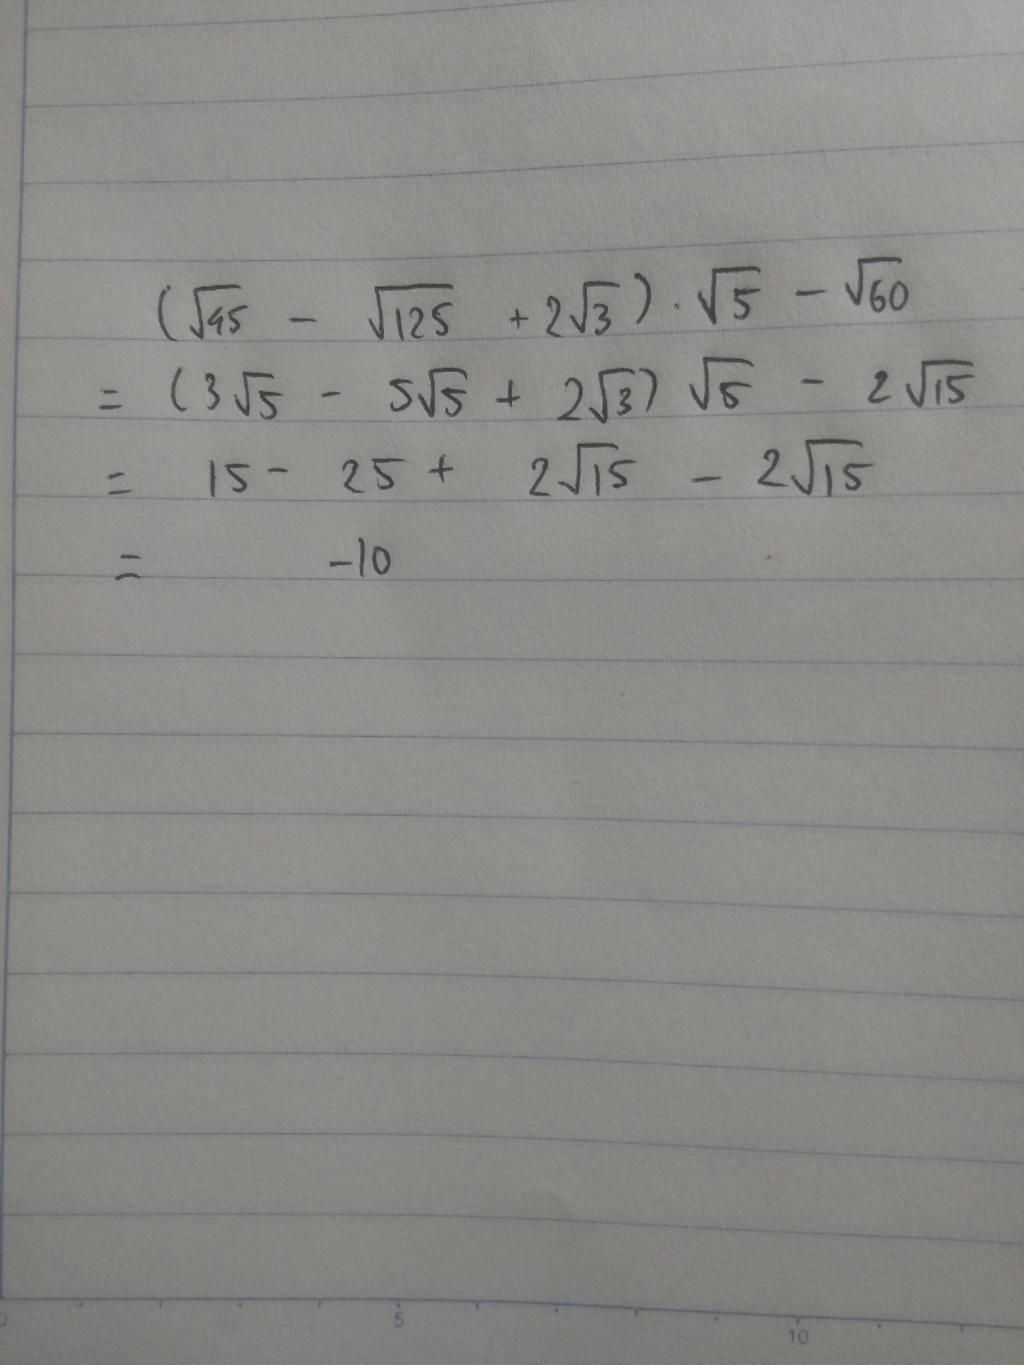 (√45 - √125 + 2√3) . √5 - √60
= (3√5 - 5√5 + 2√3) √5 - 2√15
= 15 - 25 + 2√15 - 2√15
= -10
5
10